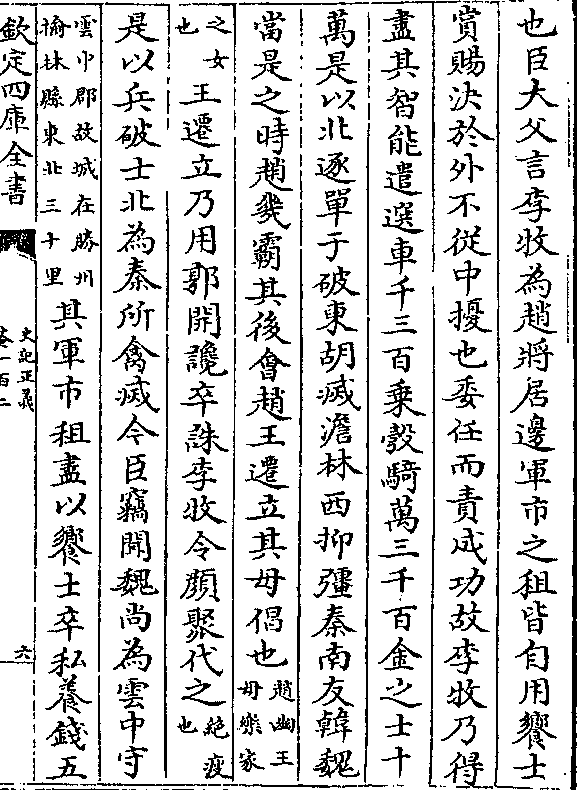 也臣大父言李牧為趙將居邊軍市之租皆自用饗士
賞賜決於外不從中擾也委任而責成功故李牧乃得
盡其智能遣選車千三百乗彀騎萬三千百金之士十
萬是以北逐單于破東胡滅澹林西抑彊秦南友韓魏
當是之時趙幾霸其後會趙王遷立其母倡也趙幽王
母樂家
之女
也王遷立乃用郭開讒卒誅李牧令顔聚代之絶疲
也
是以兵破士北為秦所禽滅今臣竊聞魏尚為雲中守
雲中郡故城在勝州
榆林縣東北三十里其軍市租盡以饗士卒私養錢五
欽定四庫全書
史記正義
卷一百二
六